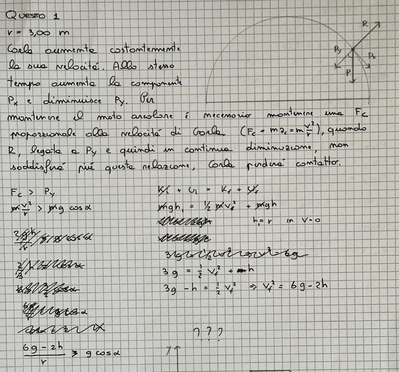 QUESITO 1
r = 3,00 m
Carla aumenta costantemente
la sua velocità. Allo stesso
tempo aumenta la componente
Px e diminuisce Py. Per
mantenere il moto circolare è necessario mantenere una Fc
proporzionale alla velocità di Carla (Fc = m ac = m v²/r), quando
R, legata a Py e quindi in continua diminuzione, non
soddisferà più questa relazione, Carla perderà contatto.
R
Py
Px
P
Fc > Py
m v²/r > mg cos α
6g - 2h / r > g cos α
Ki + Ui = Kf + Uf
mghi = 1/2 m vf² + mgh
hi = r in v=0
3g = 1/2 vf² + h
3g - h = 1/2 vf² ⇒ vf² = 6g - 2h
???
y